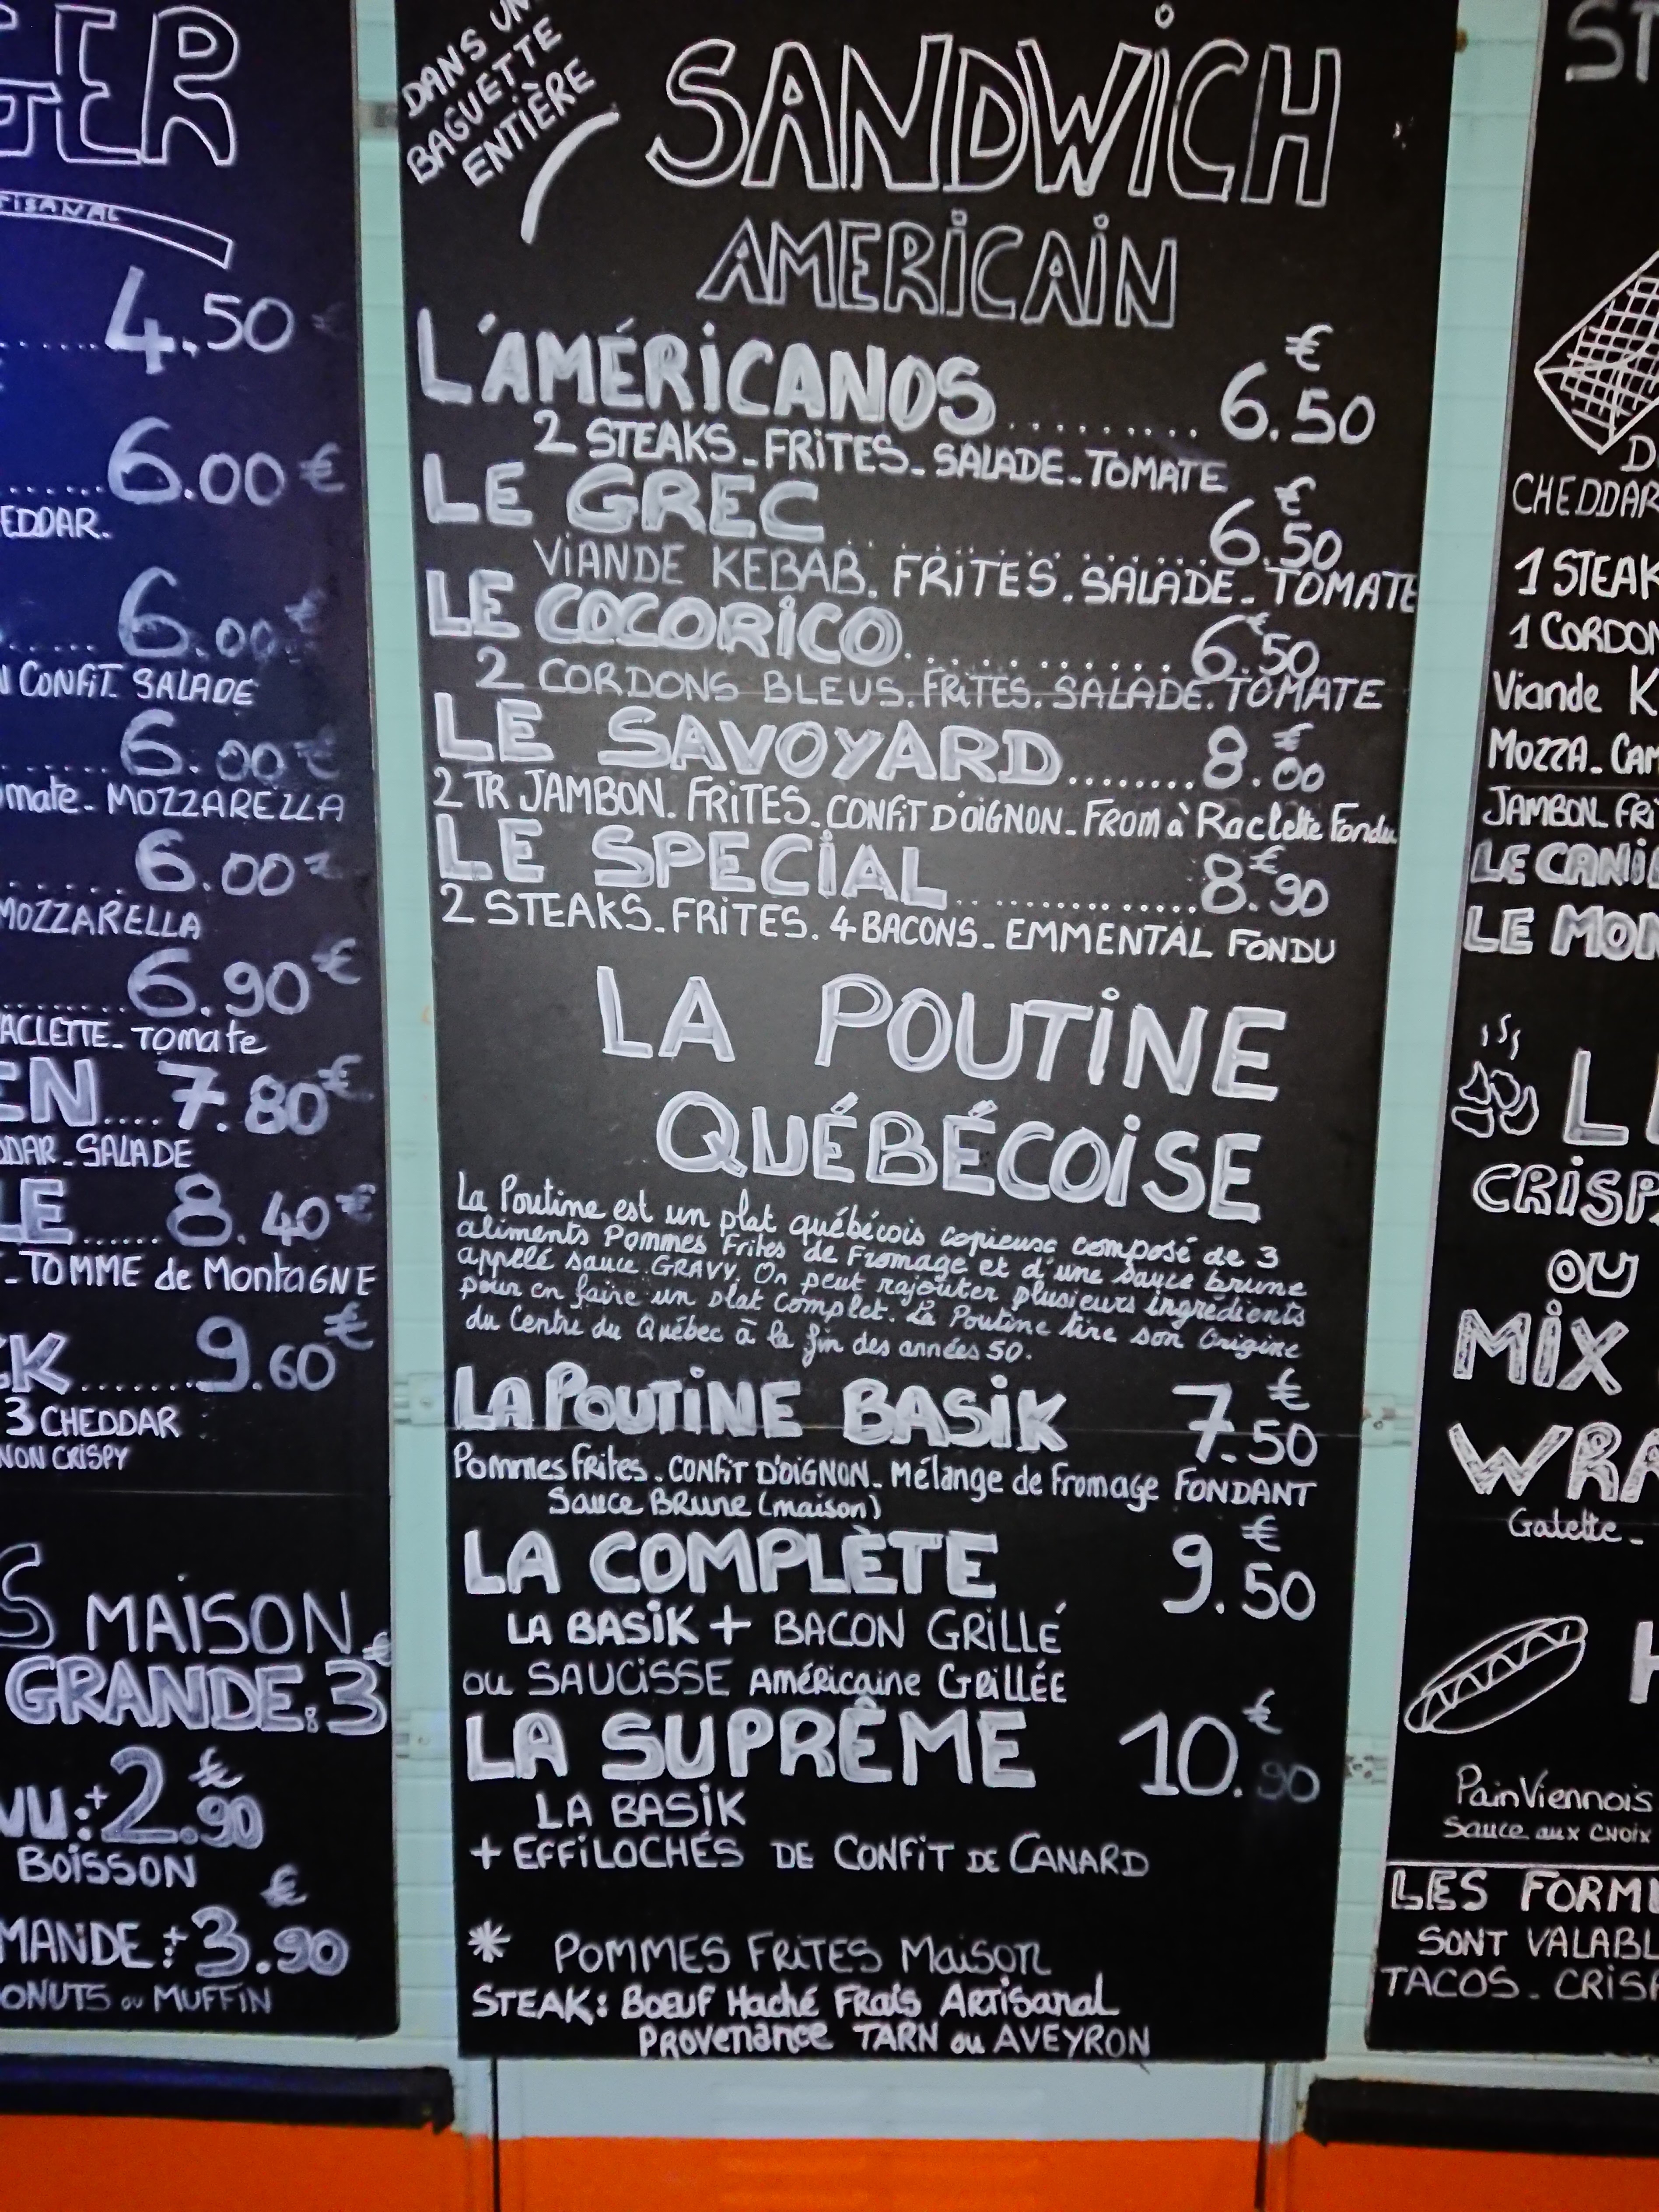 GER
TISANAL
......4.50 €
......6.00 €
EDDAR.
.....6.00 €
N CONFIT. SALADE
......6.00 €
mate - MOZZARELLA
......6.00
MOZZARELLA
......6.90 €
ACLETTE - Tomate
EN....7.80 €
DDAR - SALADE
LE......8.40 €
- TOMME de MontaGNE
CK.......9.60 €
3 CHEDDAR
NON CRISPY
S MAISON
GRANDE: 3 €
NU: + 2.90 €
BOISSON
MANDE: + 3.90 €
ONUTS ou MUFFIN
DANS UNE
BAGUETTE
ENTIÈRE
SANDWICH
AMERICAIN
L'AMÉRICANOS.......... 6.50 €
2 STEAKS - FRITES - SALADE - TOMATE
LE GREC.............. 6.50 €
VIANDE KEBAB. FRITES. SALADE - TOMATE
LE COCORICO............ 6.50 €
2 CORDONS BLEUS. FRITES. SALADE. TOMATE
LE SAVOYARD........8.00 €
2 TR JAMBON. FRITES - CONFIT D'OIGNON - FROM à Raclette Fondu
LE SPECIAL..............8.90 €
2 STEAKS - FRITES. 4 BACONS - EMMENTAL FONDU
LA POUTINE
QUÉBÉCOISE
La Poutine est un plat québécois copieuse composé de 3
aliments Pommes Frites de Fromage et d'une sauce brune
appelé sauce GRAVY. On peut rajouter plusieurs ingrédients
pour en faire un plat Complet. La Poutine tire son Origine
du Centre du Québec à la fin des années 50.
LA POUTINE BASIK 7.50 €
Pommes Frites. CONFIT D'OIGNON - Mélange de Fromage FONDANT
Sauce BRUNE (maison)
LA COMPLÈTE 9.50 €
LA BASIK + BACON GRILLÉ
ou SAUCISSE Américaine GRILLÉE
LA SUPRÊME 10.90 €
LA BASIK
+ EFFILOCHÉS DE CONFIT DE CANARD
* POMMES FRITES MAISON
STEAK: BOEUF Haché FRAIS ARTISANAL
PROVENANCE TARN ou AVEYRON
ST
D
CHEDDAR
1 STEAK
1 CORDON
Viande K
MOZZA - CAM
JAMBON. FRI
LE CANI
LE MON
L
CRISP
OU
MIX
WRA
Galette -
H
Pain Viennois
Sauce aux CHOIX
LES FORMU
SONT VALABL
TACOS - CRISP